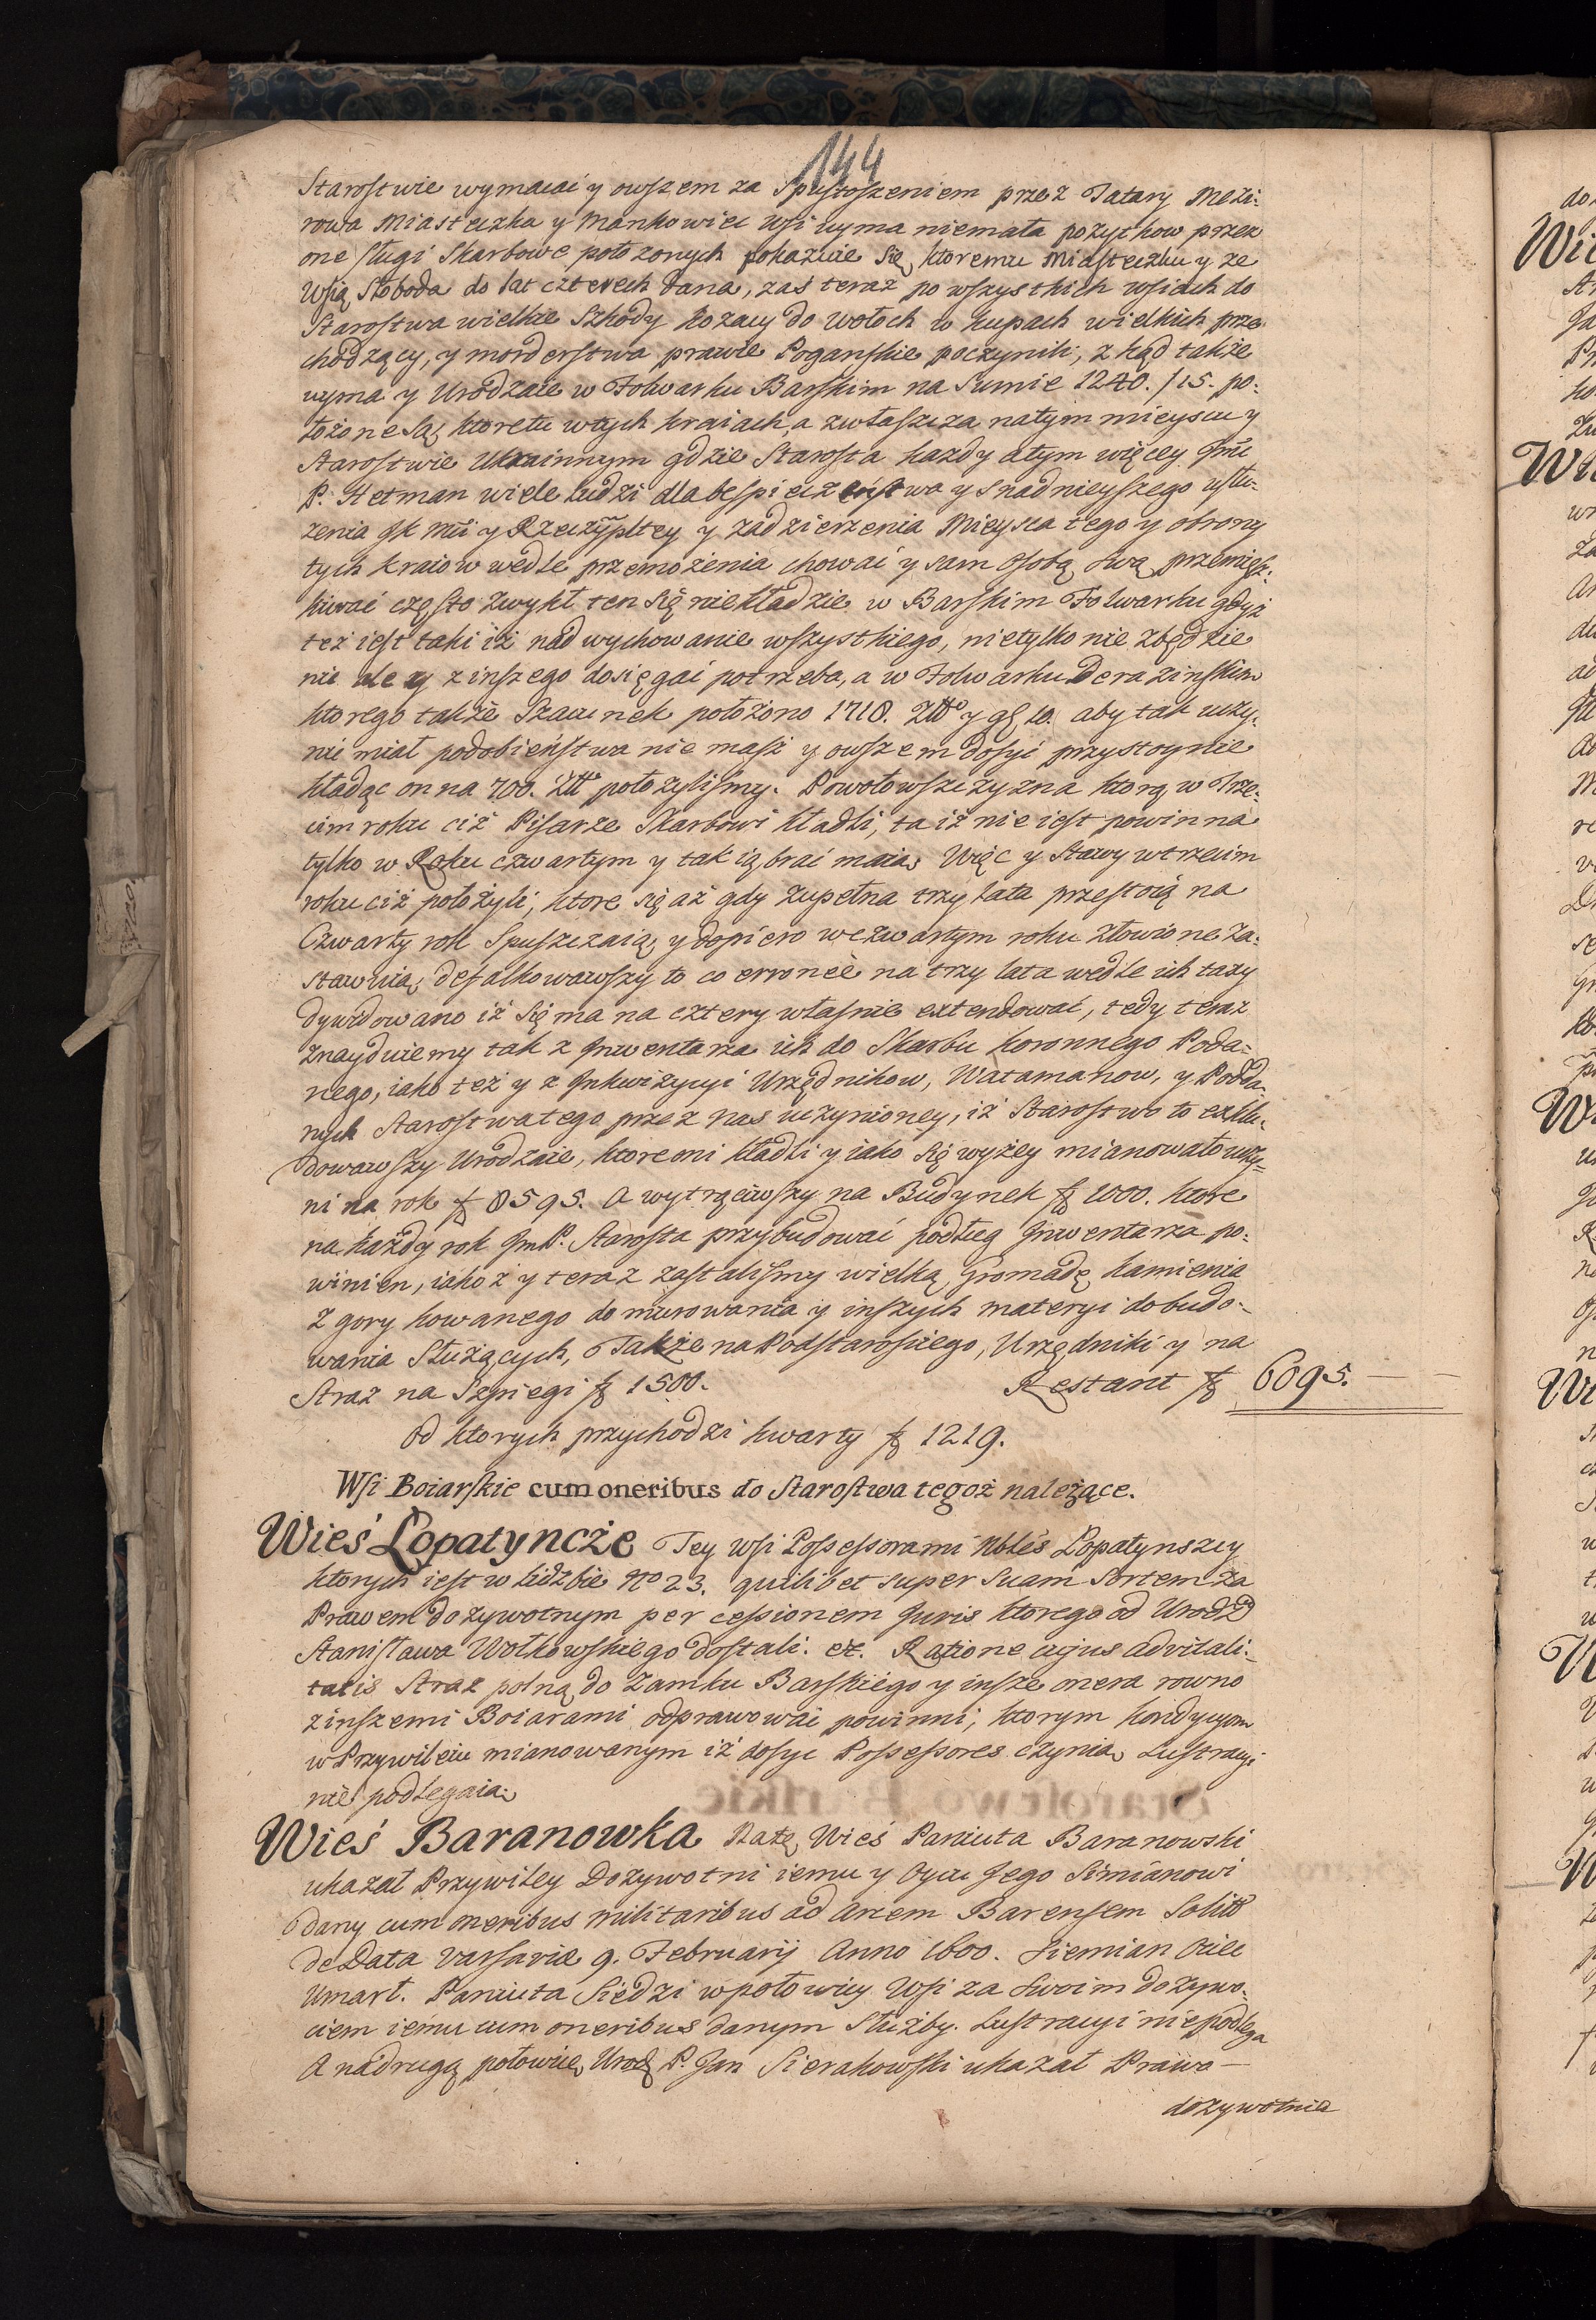 144
Starostwie wymacać y owszem za Spustoszeniem przez Tatary Meżi:
rowa Miasteczka y Mankowiec Wsi uyma niemała pożytkow przez
one sługi Skarbowe położonych pokazuie się, ktoremu Miasteczku y ze
Wsią Słoboda do lat czterech dana, zaś teraz po wszystkich wsiach do
Starostwa wielkie Szkody Kozacy do Wołoch w kupach wielkich prze:
chodzący, y morderstwa prawie Poganskie poczynili, z kąd także
uyma y Urodzaie w Folwarku Barskim na Sumie 1240./15. po:
łożone są, ktore tu w tych kraiach, a zwłaszcza na tym mieyscu y
Starostwie Ukrainnym gdzie Starosta każdy a tym więcey Jmć
P. Hetman wiele ludzi dla bespieczeństwa y snadnieyszego usłu:
żenia JK Mći y Rzeczypltey y zadzierżenia Mieysca tego y obrony
tych kraiow wedle przemożenia chować y sam Osobą swą przemięsz:
kiwać często zwykł, ten się nie kładzie w Barskim Folwarku gdyż
też iest taki iż nad wychowanie wszystkiego, nie tylko nie zbędzie
nic ale y z inszego dosięgać potrzeba, a w Folwarku Derażinskim
ktorego także Szacunek położono 1718. Złł° y gl 10. aby tak uczy:
nić miał podobieństwa nie masz y owszem dosyć przystoynie
kładąc on na 700. Złł° położyliśmy. Powołowszczyzna ktorą w Trze:
cim roku ciż Pisarze Skarbowi kładli, ta iż nie iest powinna
tylko w Roku czwartym y tak ią brać maią, Więc y Stawy w trzecim
roku ciż położyli, ktore się aż gdy zupełna trzy lata przestoią na
Czwarty rok Spuszczaią, y dopiero w czwartym roku złowione za:
stawuią, defalkowawszy to co erronee na trzy lata wedle ich taxy
dywidowano iż się ma na cztery własnie extendować, tedy teraz
znayduiemy tak z Jnwentarza ich do Skarbu Koronnego Poda:
nego, iako też y z Jnkwizycyi Urzędnikow, Watamanow, y Podda:
nych Starostwa tego przez nas uczynioney, iż Starostwo to exklu:
dowawszy Urodzaie, ktore oni kładli y iako się wyżey mianowało uczy:
ni na rok f 8595. A wytrąciwszy na Budynek f 1000. ktore
na każdy rok JmP. Starosta przybudować podług Jnwentarza po:
winien, iakoż y teraz zastaliśmy wielką Gromadę kamienia
z gory kowanego do murowania y inszych materyi do budo:
wania Służących, Także na Podstarosciego, Urzędniki y na
Straż na Szpiegi f 1500. Restant f 6095.
Od ktorych przychodzi kwarty f 1219.
Wsi Boiarskie cum oneribus do Starostwa tegoż należące.
Wieś Łopatyncże Tey wsi Possessorami Nbles Łopatynszcy
ktorych iest w liczbie N° 23. quilibet super Suam Sortem za
Prawem dożywotnym per cessionem Juris ktorego od Urodz°
Stanisława Wołkowskiego dostali. etc. Ratione cujus advitali:
tatis Straż polną do Zamku Barskiego y insze onera rowno
z inszemi Boiarami odprawować powinni, ktorym kondycyom
w Przywileiu mianowanym iż dosyć Possessores czynią, Lustracyi
nie podlegaią.
Wieś Baranowka Na tę Wieś Paniuta Baranowski
ukazał Przywiley Dożywotni iemu y Oycu Jego Simianowi
dany cum oneribus militaribus ad Arcem Barensem Solitis
de Data Varsaviæ 9. Februarij Anno 1600. Siemian Ociec
Umarł. Paniuta Siedzi w połowicy Wsi za swoim dożywo:
ciem iemu cum oneribus danym Służby. Lustracyi nie podlega
A na drugą połowicę Urodz P. Jan Sierakowski ukazał Prawo —
dożywotnie